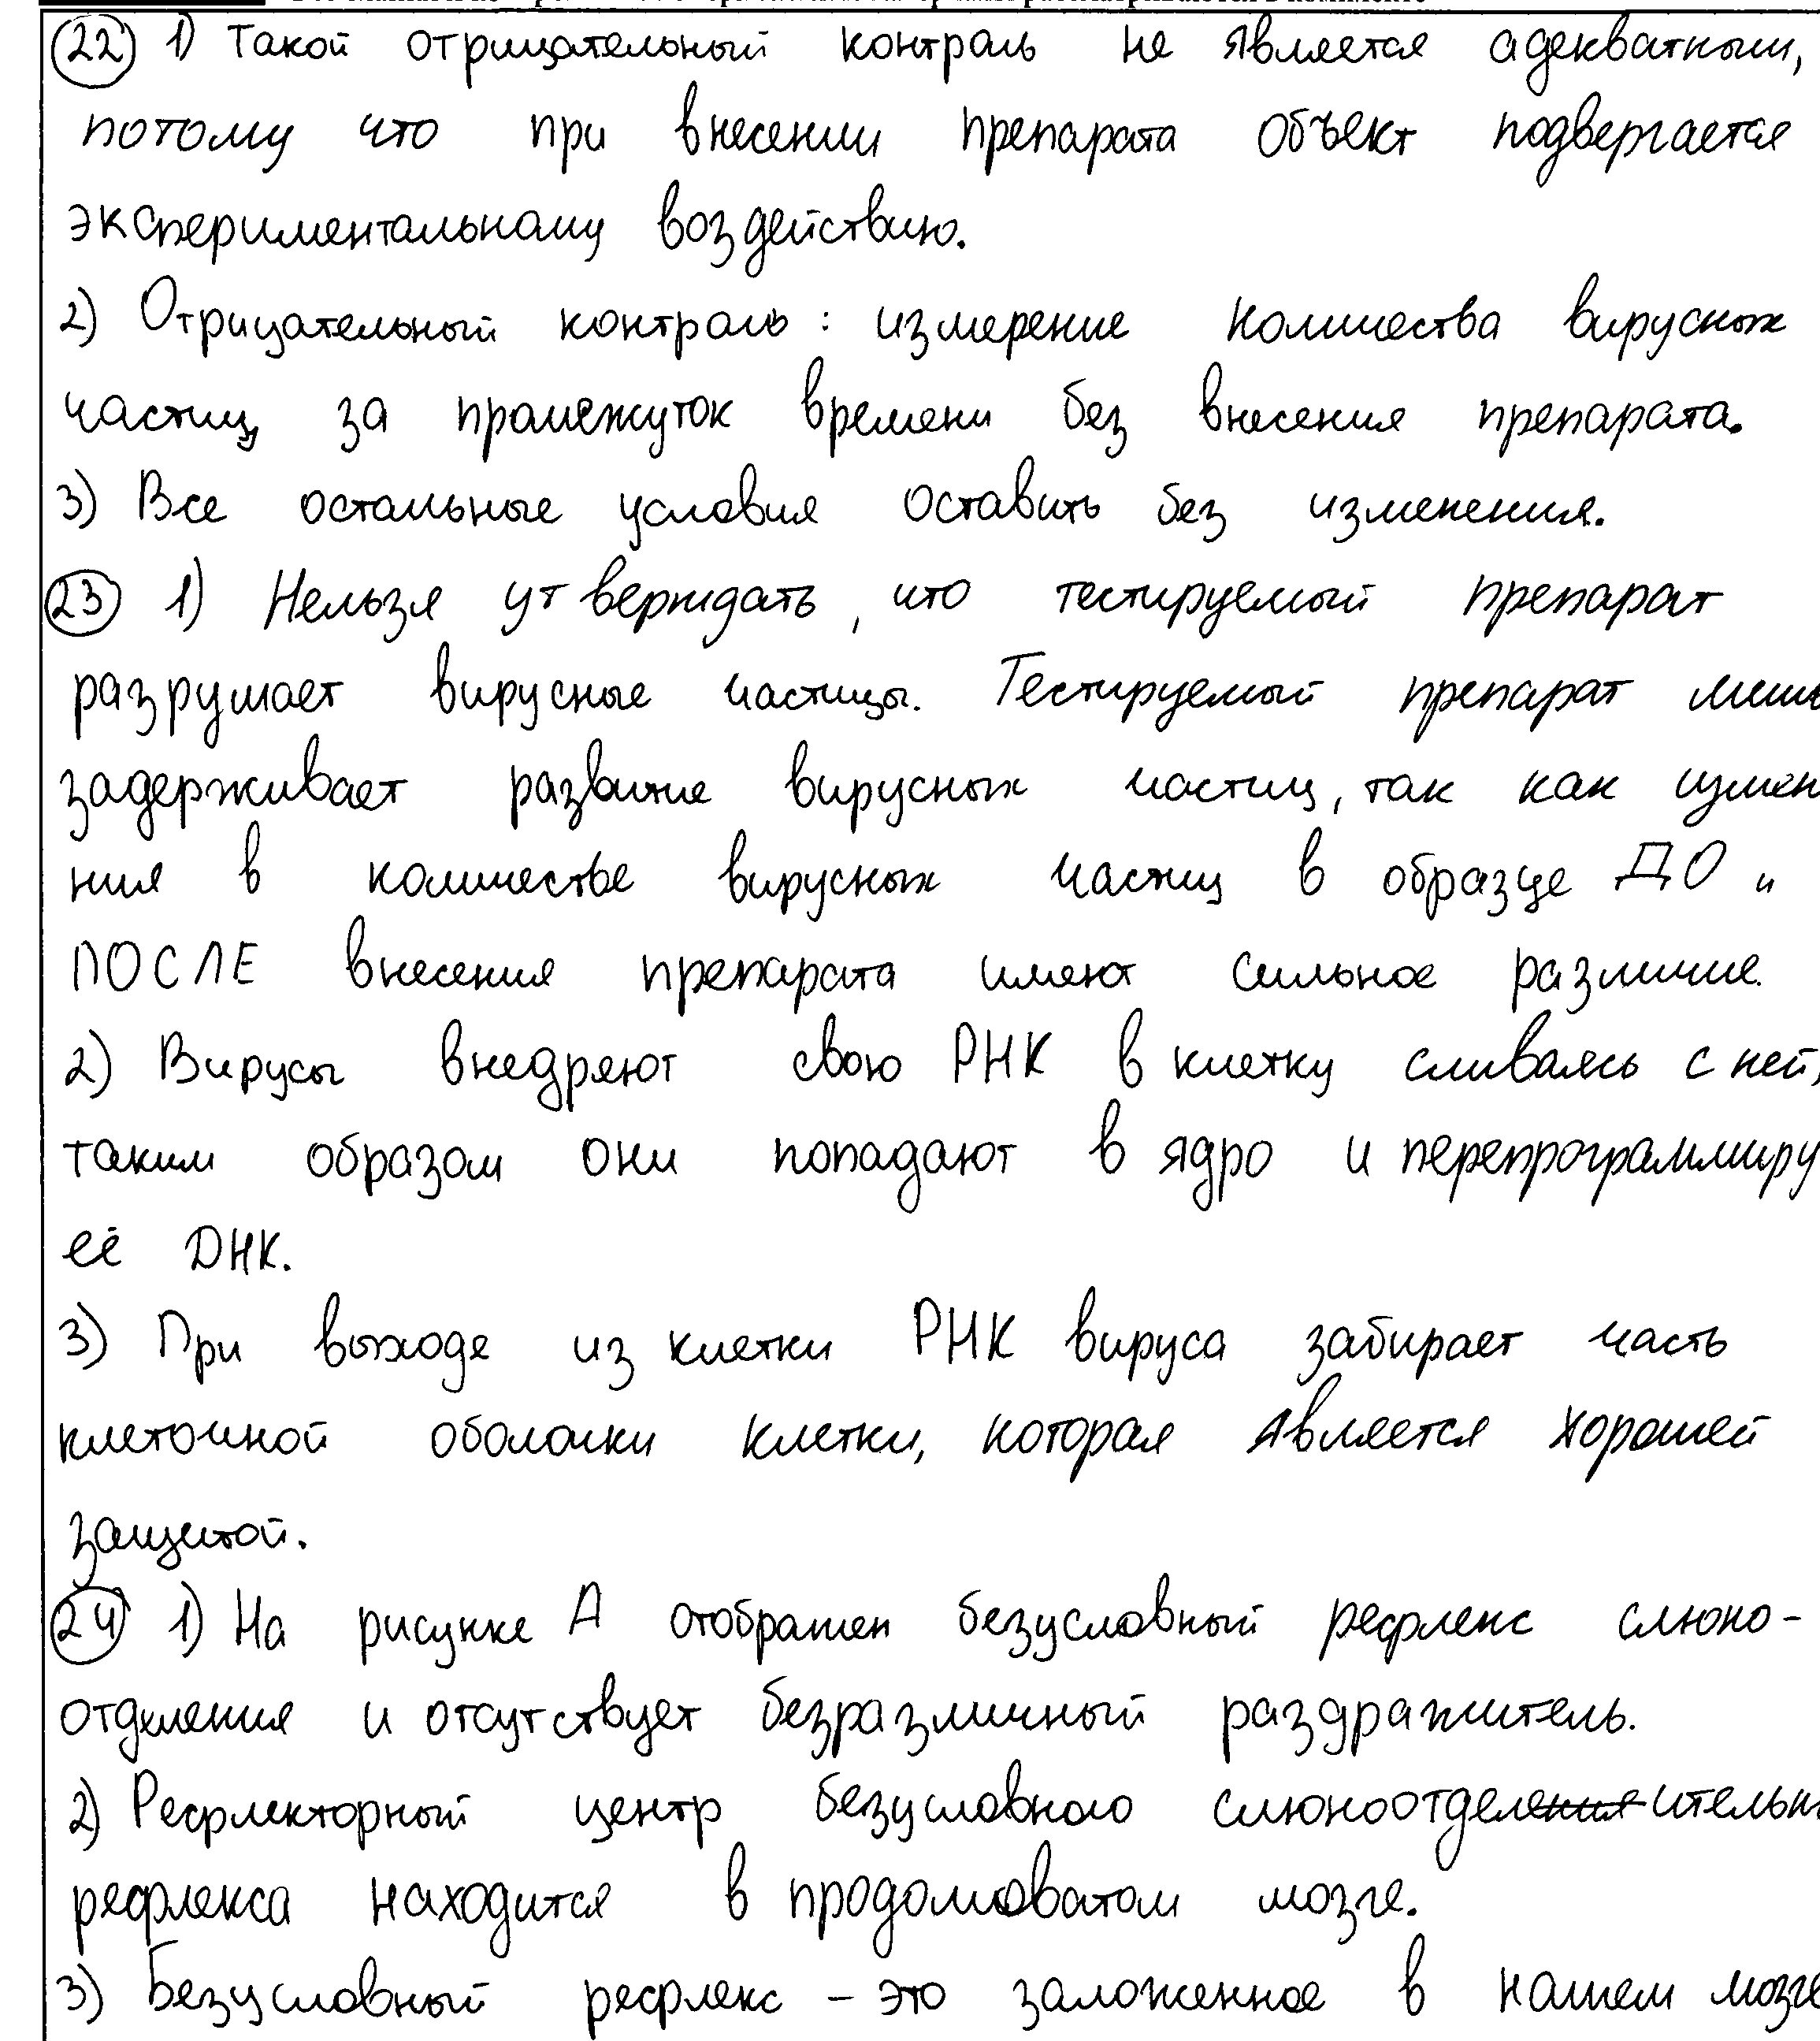 (22) 1) Такой отрицательный контроль не является адекватным,
потому что при внесении препарата объект подвергается
экспериментальному воздействию.
2) Отрицательный контроль: измерение количества вирусных
частиц за промежуток времени без внесения препарата.
3) Все остальные условия оставить без изменения.
(23) 1) Нельзя утверждать, что тестируемый препарат
разрушает вирусные частицы. Тестируемый препарат лишь
задерживает развитие вирусных частиц, так как измен
ния в количестве вирусных частиц в образце ДО и
ПОСЛЕ внесения препарата имеют сильное различие.
2) Вирусы внедряют свою РНК в клетку сливаясь с ней,
таким образом они попадают в ядро и перепрограммиру
её ДНК.
3) При выходе из клетки РНК вируса забирает часть
клеточной оболочки клетки, которая является хорошей
защитой.
(24) 1) На рисунке А отображен безусловный рефлекс слюно-
отделения и отсутствует безразличный раздражитель.
2) Рефлекторный центр безусловного слюноотделительн
рефлекса находится в продолговатом мозге.
3) Безусловный рефлекс - это заложенное в нашем мозге